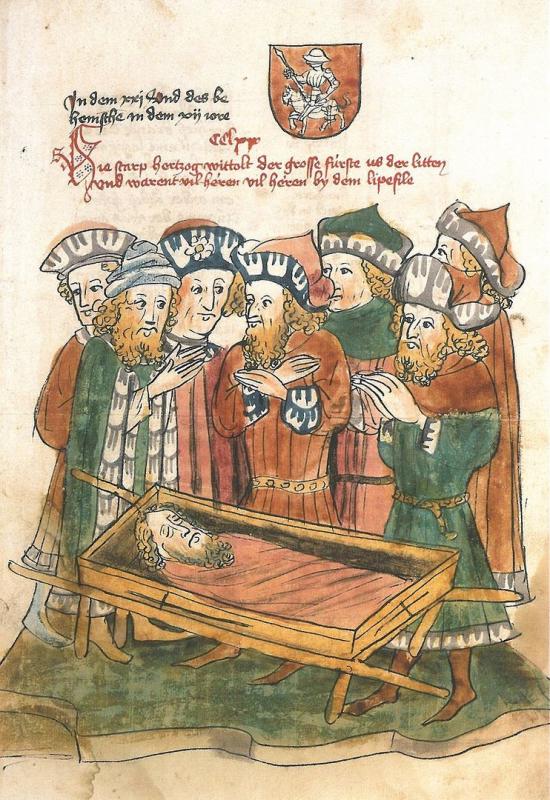 In dem xxj und des be
hemsche in dem xij iore
CClxx
Hie starp hertzog wittolt der grosse fürste us der litten
Und warent vil heren vil heren by dem lipefile